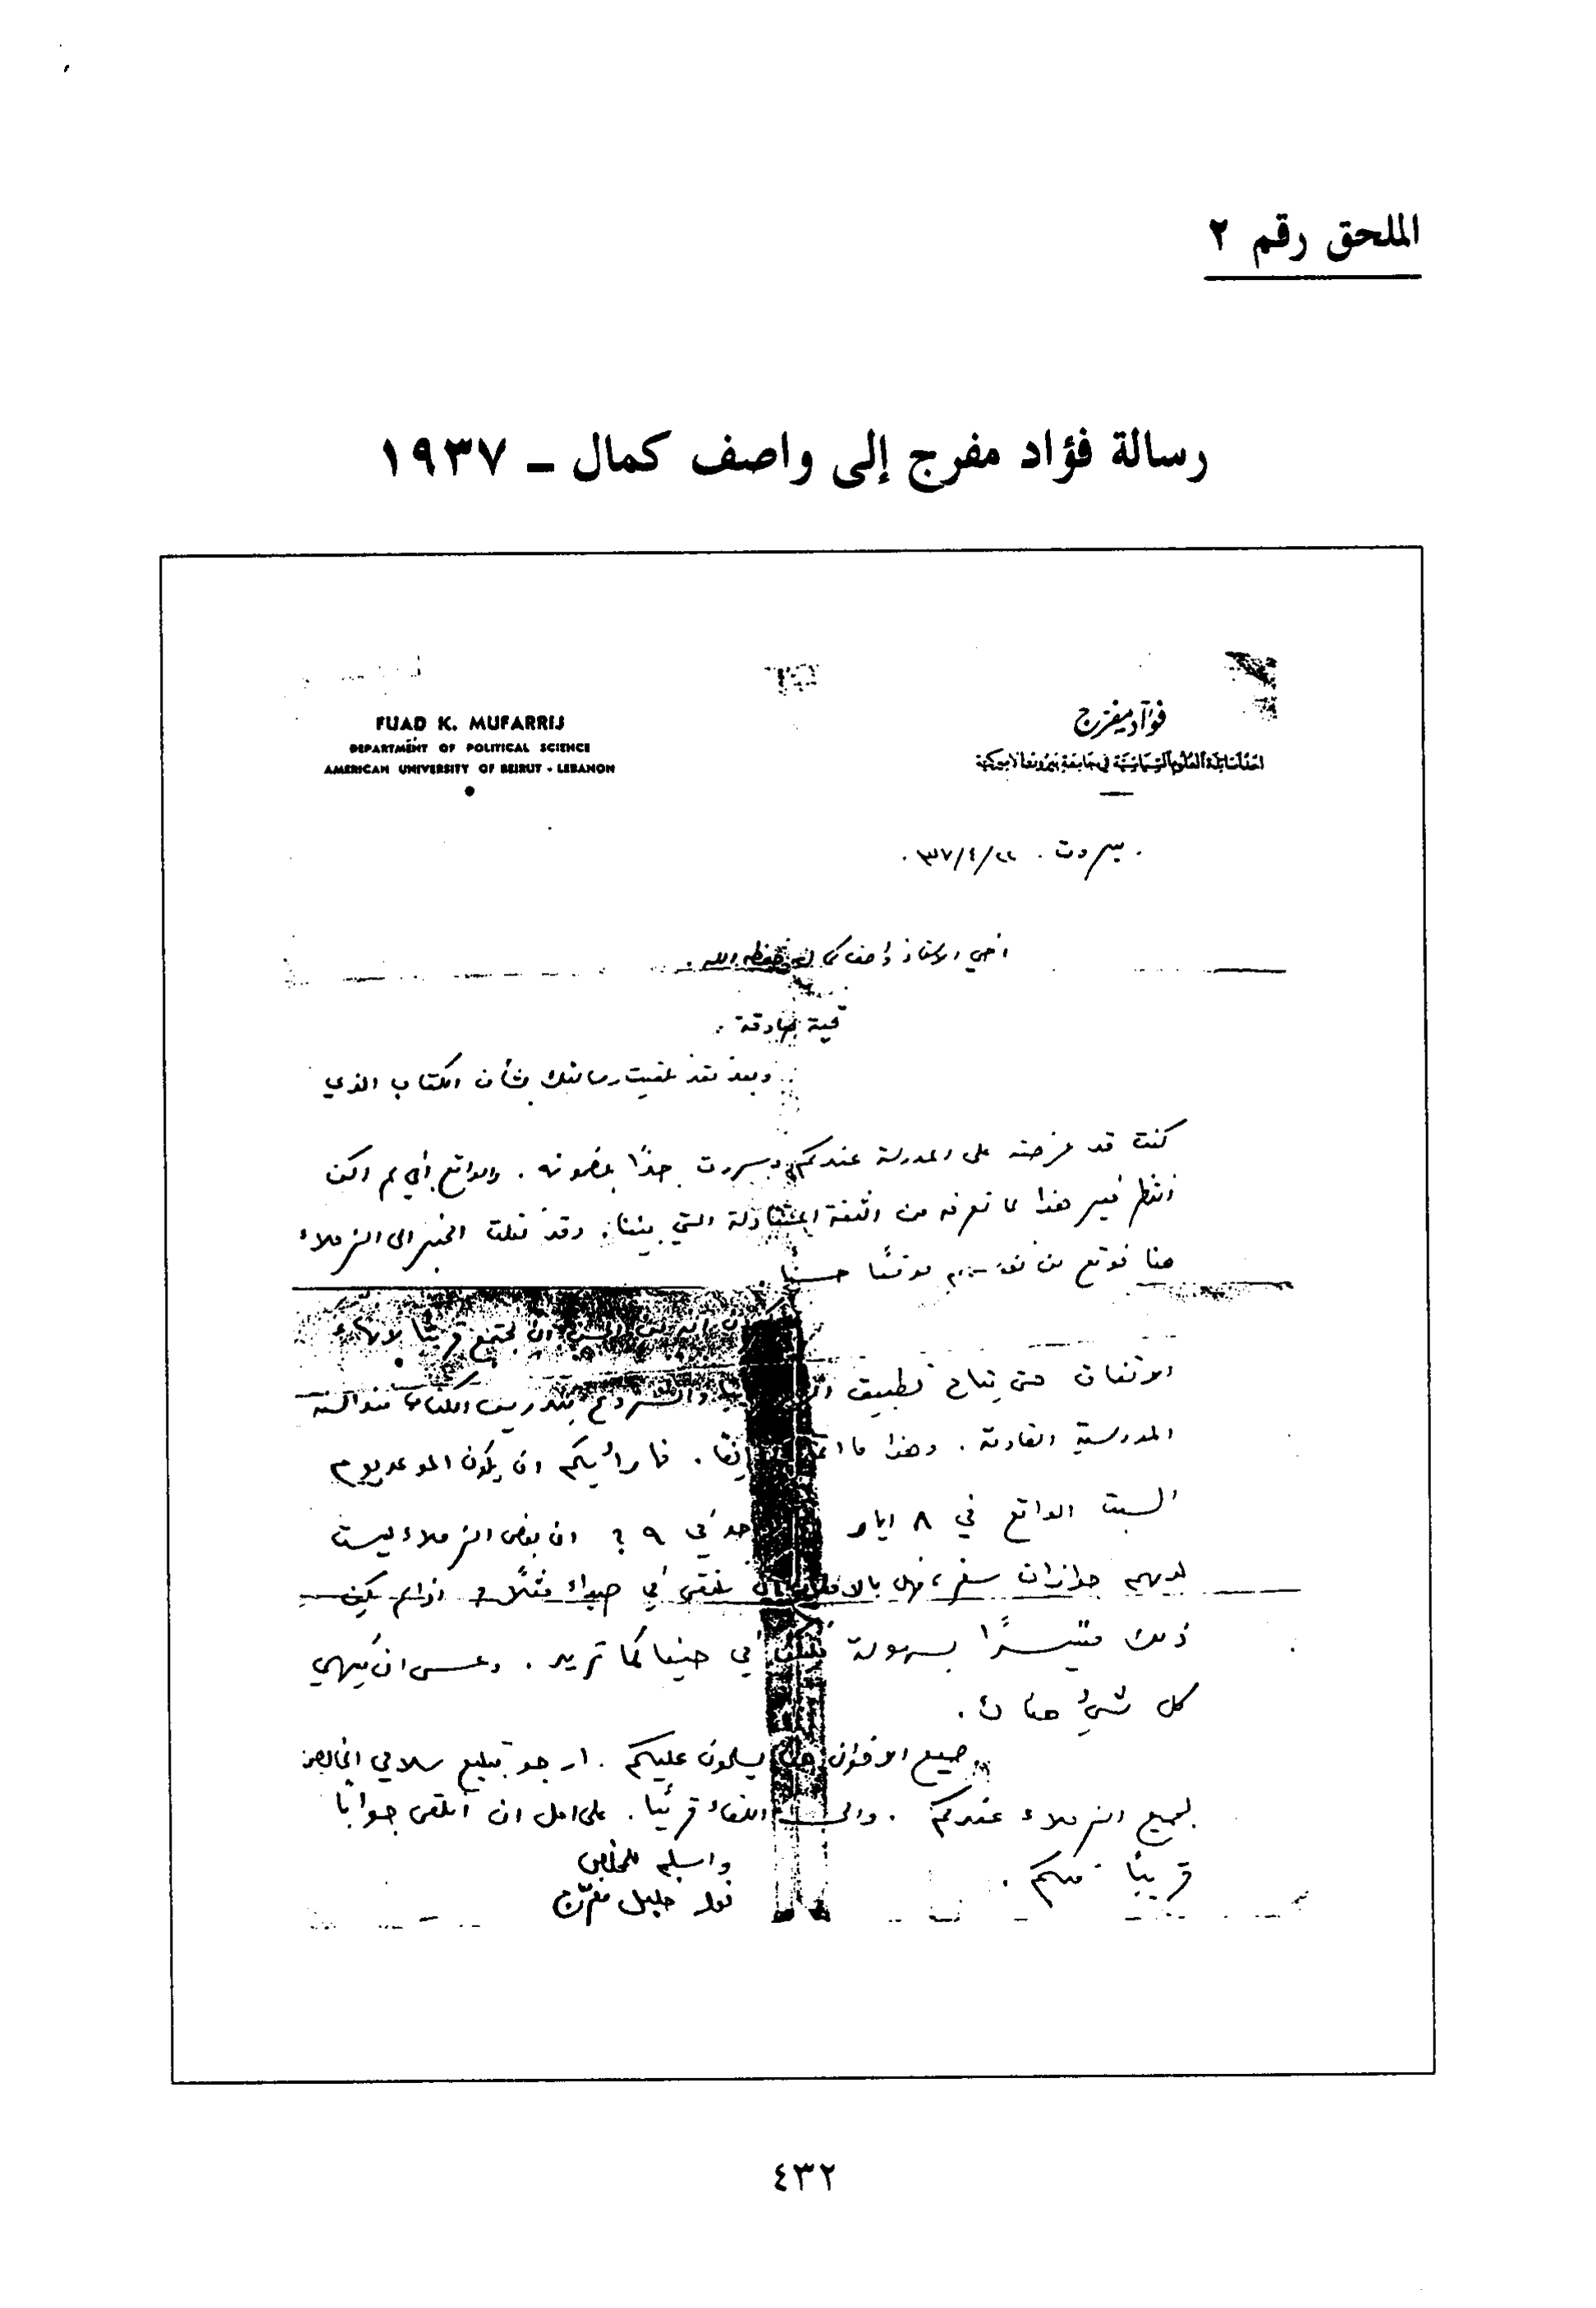 الملحق رقم ٢
رسالة فؤاد مفرج إلى واصف كمال ـ ١٩٣٧
FUAD K. MUFARRIJ
DEPARTMENT OF POLITICAL SCIENCE
AMERICAN UNIVERSITY OF BEIRUT - LEBANON
فؤاد مفرّج
احد اساتذة العلوم السياسية في جامعة بيروت الاميركية
بيروت . ٢٢/٤/٣٧ .
اخي الاستاذ واصف كمال حفظه الله .
تحية صادقة .
وبعد فقد تلقيت رسالتك بشأن الكتاب الذي
كنت قد عرضته على المدرسة عندكم وسررت جدًا بمضمونه . والواقع أني لم اكن
انتظر غير هذا لما نعرفه من الثقة المتبادلة التي بيننا . وقد نقلت الخبر الى الزملاء
هنا فوقع من موقعًا حسنًا .
ان نجتمع قريبًا لانهاء
الاتفاق حتى يتاح تطبيق والشروع بتدريس الكتاب منذ السنة
المدرسية القادمة . وهذا ما . فما رأيكم ان يكون الموعد يوم
السبت الواقع في ٨ ايار في ٩ ؟ ان بعض الزملاء ليست
لديهم جوازات سفر ، فهل بالامكان ان نلتقي في صيداء مثلًا ؟ واذا لم يكن
ذلك متيسرًا بسهولة في حيفا كما تريد . وعسى ان ينهي
كل شيء هناك .
جميع الاخوان هنا يسلمون عليكم . ارجو تبليغ سلامي الخالص
لجميع الزملاء عندكم . والى اللقاء قريبًا . على امل ان اتلقى جوابًا
قريبًا منكم .
واسلم للمخلص
فؤاد خليل مفرّج
٤٣٢